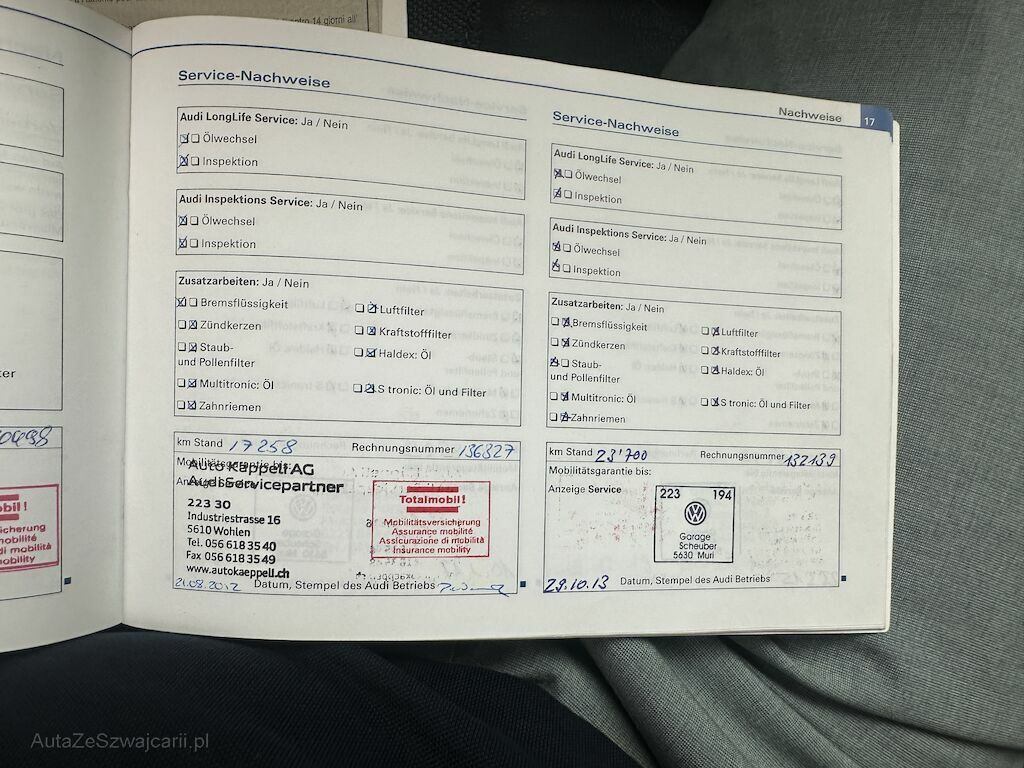 ntro 14 giorni all'
Service-Nachweise
Audi LongLife Service: Ja / Nein
Ölwechsel
Inspektion
Audi Inspektions Service: Ja / Nein
Ölwechsel
Inspektion
Zusatzarbeiten: Ja / Nein
Bremsflüssigkeit
Luftfilter
Zündkerzen
Kraftstofffilter
Staub-
und Pollenfilter
Haldex: Öl
Multitronic: Öl
S tronic: Öl und Filter
Zahnriemen
km Stand 17258 Rechnungsnummer 136327
Mobilitätsgarantie bis:
Auto Kappeli AG
Audi Servicepartner
223 30
Industriestrasse 16
5610 Wohlen
Tel. 056 618 35 40
Fax 056 618 35 49
www.autokaeppeli.ch
Totalmobil!
Mobilitätsversicherung
Assurance mobilité
Assicurazione di mobilità
Insurance mobility
21.08.2012 Datum, Stempel des Audi Betriebs
Nachweise 17
Service-Nachweise
Audi LongLife Service: Ja / Nein
Ölwechsel
Inspektion
Audi Inspektions Service: Ja / Nein
Ölwechsel
Inspektion
Zusatzarbeiten: Ja / Nein
Bremsflüssigkeit
Luftfilter
Zündkerzen
Kraftstofffilter
Staub-
und Pollenfilter
Haldex: Öl
Multitronic: Öl
S tronic: Öl und Filter
Zahnriemen
km Stand 23'700 Rechnungsnummer 132139
Mobilitätsgarantie bis:
Anzeige Service
223 194
Garage
Scheuber
5630 Muri
29.10.13 Datum, Stempel des Audi Betriebs
AutaZeSzwajcarii.pl